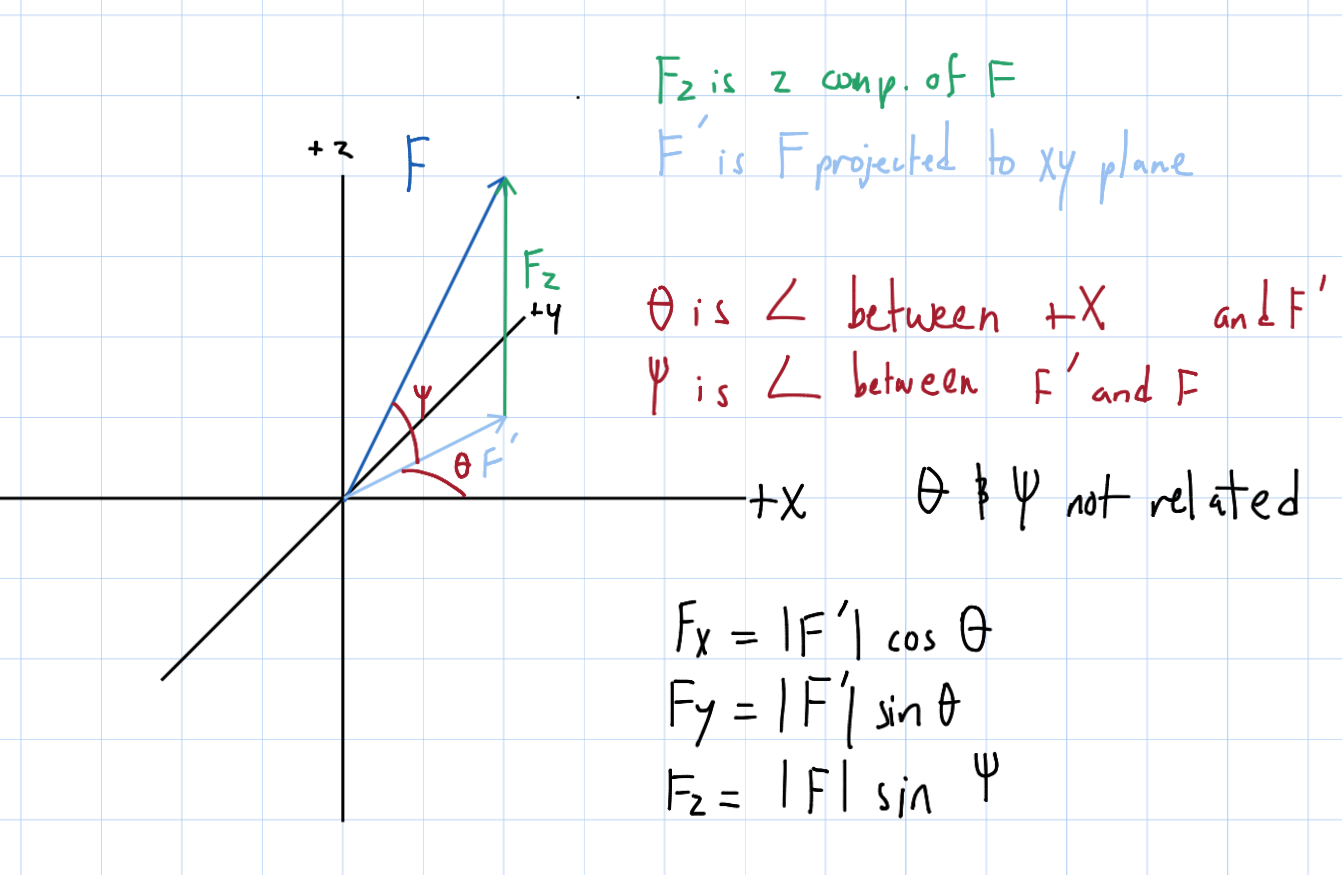 F₂ is z comp. of F
F′ is F projected to xy plane
+z
F
F₂
+y
θ is ∠ between +X and F′
ψ is ∠ between F′ and F
ψ
θ
F′
+X
θ & ψ not related
Fx = |F′| cos θ
Fy = |F′| sin θ
Fz = |F| sin ψ